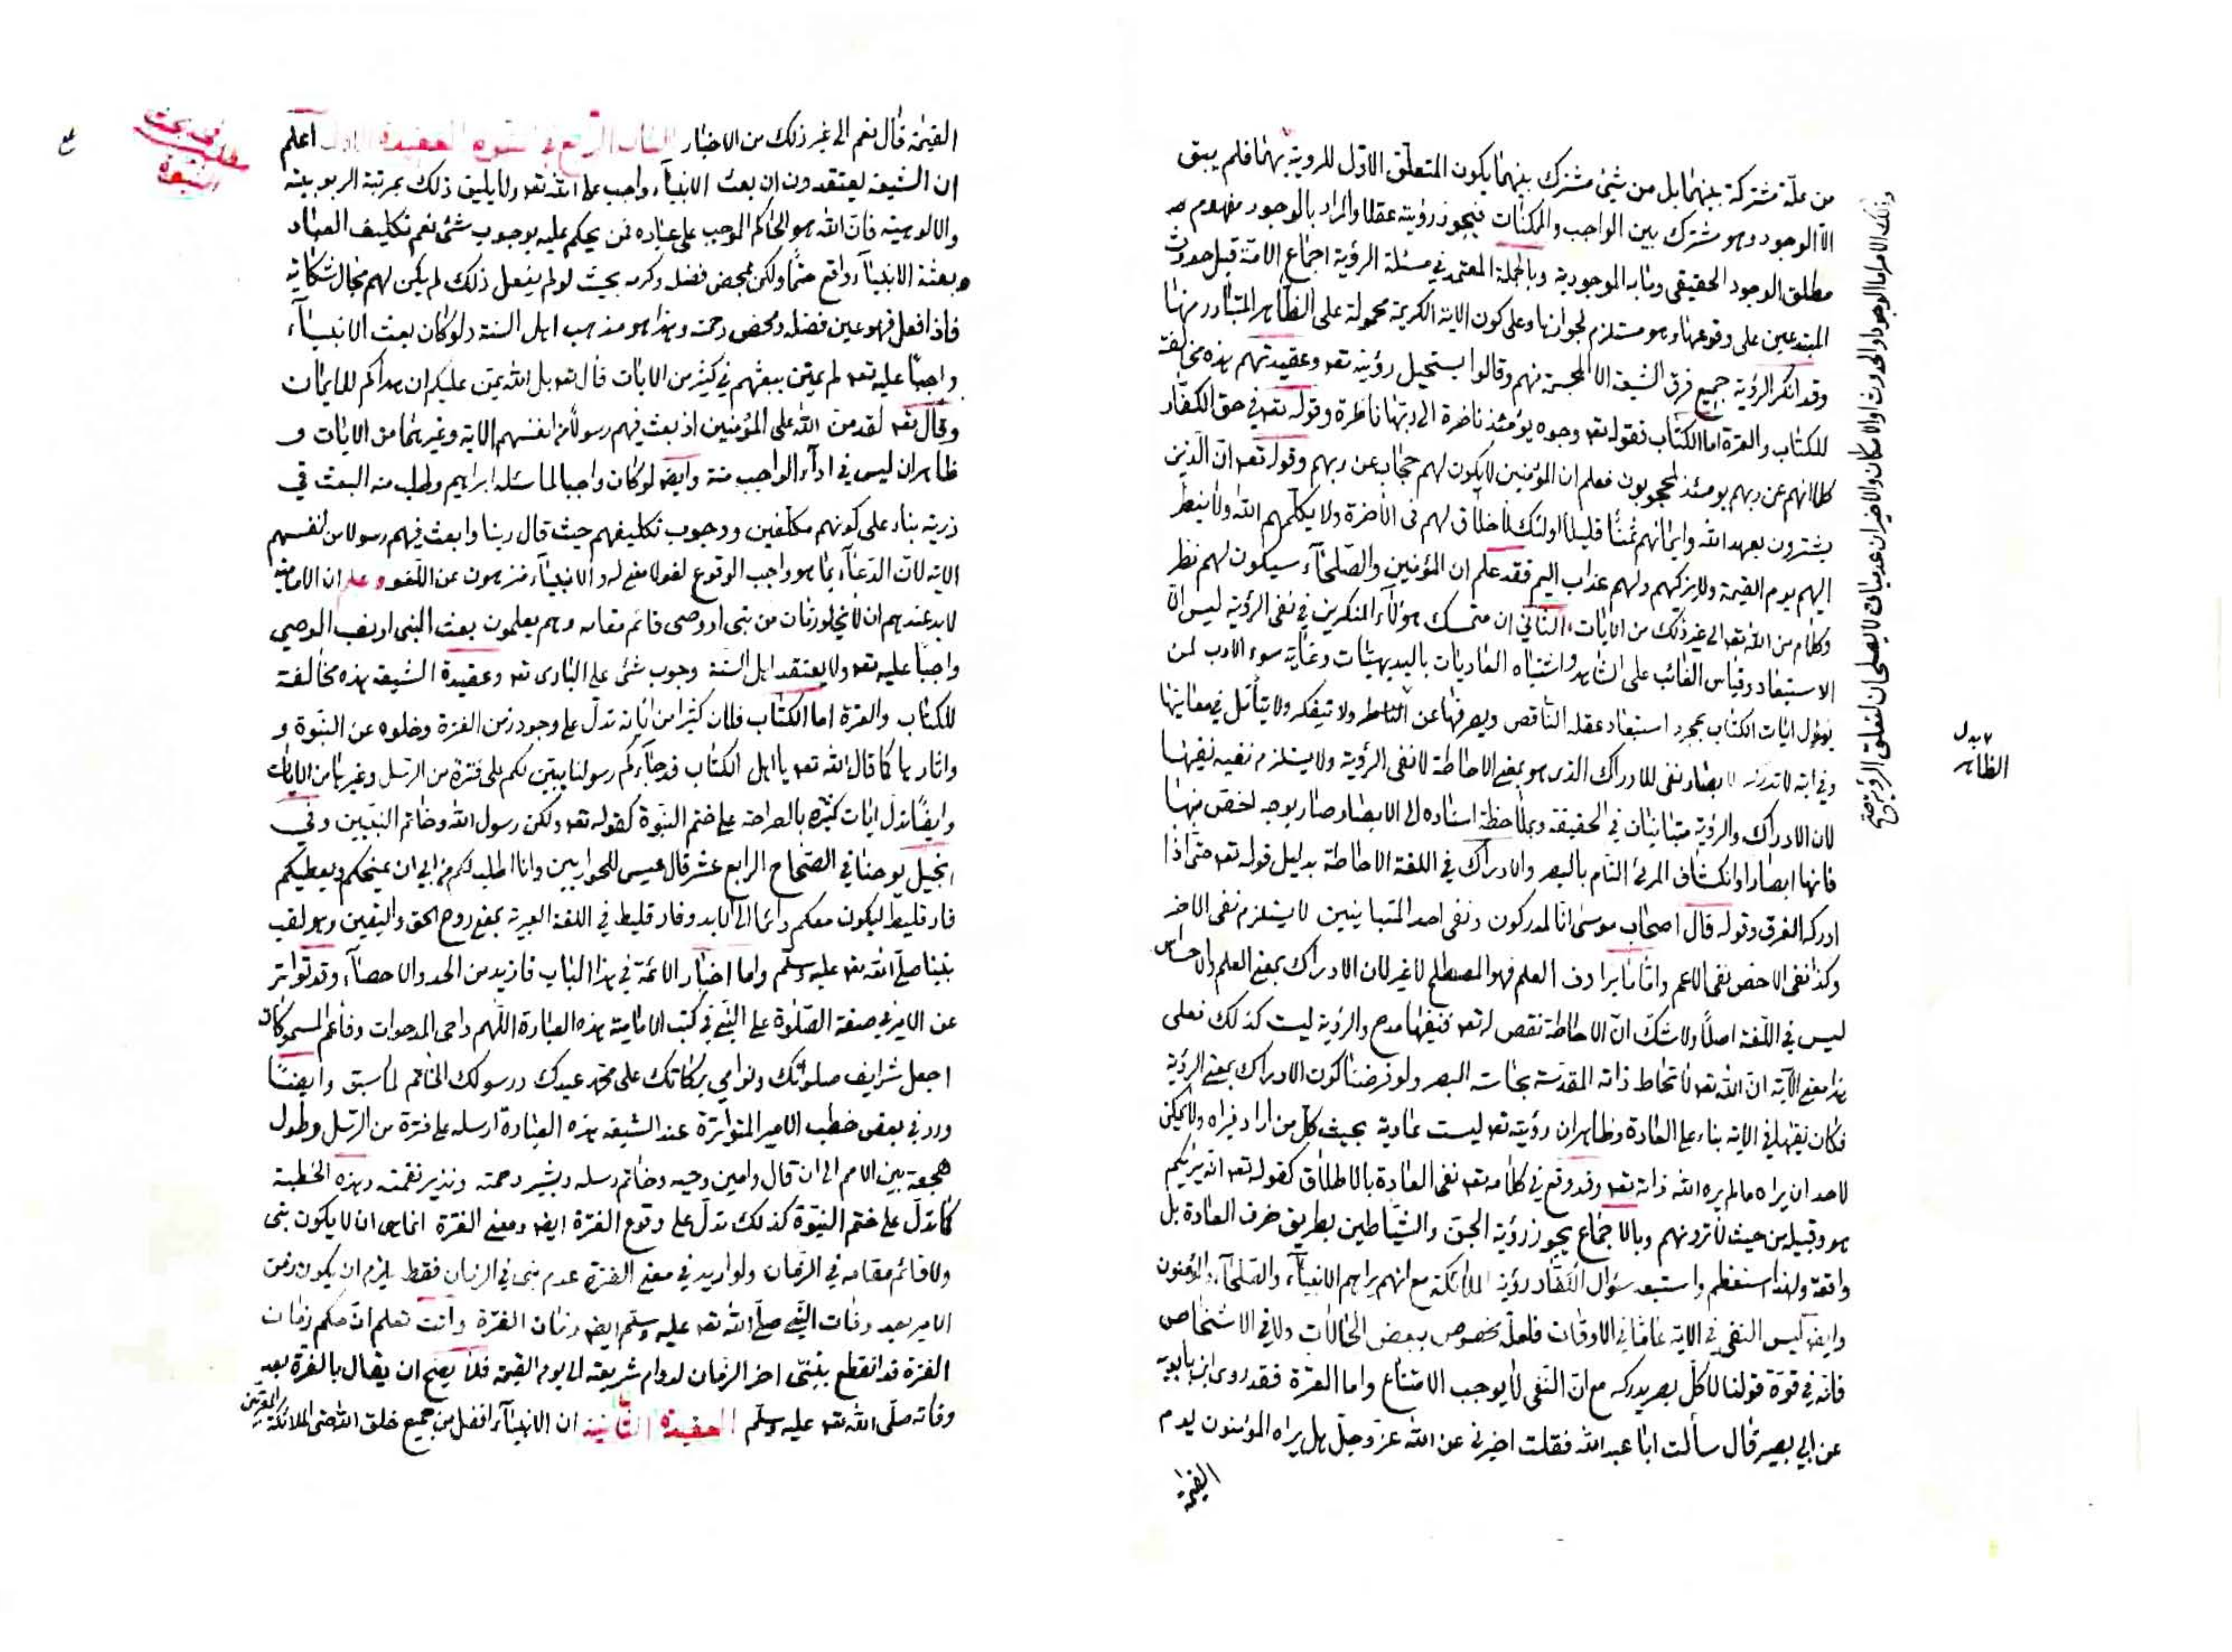 من علة مشتركة بينهما بل من شئ مشترك بينهما يكون المتعلق الاول للروية بهما فلم يبق
الا الوجود وهو مشترك بين الواجب والممكنات فيجوز رؤيته عقلا والمراد بالوجود مفهوم
مطلق الوجود الحقيقى وما به الموجودية وبالجملة المعتمد في مسئلة الرؤية اجماع الامة قبل حدوث
المبتدعين على وقوعها وهو مستلزم لجوازها وعلى كون الاية الكريمة محمولة على الظاهر المتبادر منها
وقد انكر الرؤية جميع فرق الشيعة الا المجسمة منهم وقالوا يستحيل رؤيته تعه وعقيدتهم هذه مخالفة
للكتاب والعترة اما الكتاب فقوله تعه وجوه يومئذ ناضرة الى ربها ناظرة وقوله تعه في حق الكفار
كلا انهم عن ربهم يومئذ لمحجوبون فعلم ان المؤمنين لا يكون لهم حجاب عن ربهم وقوله تعه ان الذين
يشترون بعهد الله وايمانهم ثمنا قليلا اولئك لا خلاق لهم فى الاخرة ولا يكلمهم الله ولا ينظر
اليهم يوم القيمة ولا يزكيهم ولهم عذاب اليم فقد علم ان المؤمنين والصلحآء سيكون لهم نظر
وكلام من الله تعه الى غير ذلك من الايات، الثاني ان متمسك هؤلآء المنكرين في نفى الرؤية ليس الا
الاستبعاد وقياس الغائب على الشاهد واشتباه العاديات بالبديهيات وغاية سوء الادب لمن
يؤول ايات الكتاب بمجرد استبعاد عقله الناقص ويصرفها عن الظاهر ولا يتفكر ولا يتأمل في معانيها
وفي اية لا تدركه الابصار نفى للادراك الذى هو بمعنى الاحاطة لا نفى الرؤية ولا يستلزم نفيه نفيها
لان الادراك والرؤية متباينان في الحقيقة وبملاحظة اسناده الى الابصار صار بوجه اخص منها
فانها ابصارا وانكشاف المرئ التام بالبصر والادراك في اللغة الاحاطة بدليل قوله تعه حتى اذا
ادركه الغرق وقوله قال اصحاب موسى انا لمدركون ونفى احد المتباينين لا يستلزم نفى الاخر
وكذا نفى الاخص نفى الاعم واما ما يرادف العلم فهو المصطلح لا غير لان الادراك بمعنى العلم والاحساس
ليس في اللغة اصلا ولا شك ان الاحاطة نقص له تعه فنفيها مدح والرؤية ليست كذلك فعلى
هذا معنى الآية ان الله تعه لا تحاط ذاته المقدسة بحاسة البصر ولو فرضنا كون الادراك بمعنى الرؤية
فكان نفيها في الاية بناء على العادة وظاهر ان رؤيته تعه ليست عادية بحيث كل من اراد فيراه ولا يمكن
لاحد ان يراه ما لم يره الله ذاته تعه وقد وقع في كلامه تعه نفى العادة بالاطلاق كقوله تعه انه يريكم
هو وقبيله من حيث لا ترونهم وبالاجماع يجوز رؤية الجن والشياطين بطريق خرق العادة بل
واقعة ولهذا استعظم واستبعد سؤال الكفار رؤية الملائكة مع انهم يراهم الانبيآء والصلحآء والمؤمنون
وايضا ليس النفى في الاية عاما في الاوقات فلعله مخصوص ببعض الحالات ولا في الاشخاص
فانه في قوة قولنا لا كل بصر يدركه مع ان النفى لا يوجب الامتناع واما العترة فقد روى ابن بابويه
عن ابي بصير قال سألت ابا عبد الله فقلت اخبرنى عن الله عز وجل هل يراه المؤمنون يوم
القيمة
وذلك الامر اما الوجود او الحدوث او الامكان والاخيران عدميان لا يصلحان لتعلق الرؤية
بدل
الظاهر
القيمة قال نعم الى غير ذلك من الاخبار الباب الرابع في النبوة العقيدة الاولى اعلم
ان الشيعة يعتقدون ان بعث الانبيآء واجب على الله تعه ولا يليق ذلك بمرتبة الربوبية
والالوهية فان الله هو الحاكم الموجب على عباده فمن يحكم عليه بوجوب شئ نعم تكليف العباد
وبعثة الانبيآء واقع حتما ولكن بمحض فضله وكرمه بحيث لو لم يفعل ذلك لم يكن لهم مجال شكاية
فاذا فعل فهو عين فضله ومحض رحمته وهذا هو مذهب اهل السنة ولو كان بعث الانبيآء
واجبا عليه تعه لم يمتن ببعثهم في كثير من الايات قال تعه بل الله يمن عليكم ان هداكم للايمان
وقال تعه لقد من الله على المؤمنين اذ بعث فيهم رسولا من انفسهم الاية وغيرهما من الايات و
ظاهر ان ليس في ادآء الواجب منة وايضا لو كان واجبا لما سئله ابراهيم وطلب منه البعث في
ذريته بناء على كونهم مكلفين ووجوب تكليفهم حيث قال ربنا وابعث فيهم رسولا من انفسهم
الاية لان الدعآء بما هو واجب الوقوع لغو لا معنى له والانبيآء منزهون عن اللغو وعلم ان الامامية
لا بد عندهم ان لا يخلو زمان من نبى او وصى قائم مقامه وهم يعلمون بعث النبى او نصب الوصى
واجبا عليه تعه ولا يعتقد اهل السنة وجوب شئ على البارى تعه وعقيدة الشيعة هذه مخالفة
للكتاب والعترة اما الكتاب فلان كثيرا من اياته تدل على وجود زمن الفترة وخلوه عن النبوة و
واثارها كما قال الله تعه يا اهل الكتاب قد جآءكم رسولنا يبين لكم على فترة من الرسل وغيرها من الايات
وايضا تدل ايات كثيرة بالصراحة على ختم النبوة كقوله تعه ولكن رسول الله وخاتم النبيين وفي
انجيل يوحنا في الصحاح الرابع عشر قال عيسى للحواريين وانا اطلب لكم من ابي ان يمنحكم ويعطيكم
فارقليط ليكون معكم دائما الى الابد وفارقليط في اللغة العبرية بمعنى روح الحق واليقين وهو لقب
نبينا صلى الله تعه عليه وسلم واما اخبار الائمة في هذا الباب فازيد من الحد والاحصآء وقد تواتر
عن الامير في صفة الصلوة على النبي في كتب الامامية بهذه العبارة اللهم داحى المدحوات وفاعم المسموكات
اجعل شرايف صلواتك ونوامي بركاتك على محمد عبدك ورسولك الخاتم لما سبق وايضا
ورد في بعض خطب الامير المتواترة عند الشيعة بهذه العبارة ارسله على فترة من الرسل وطول
هجعة بين الامم الى ان قال وامين وحيه وخاتم رسله وبشير رحمته ونذير نقمته وهذه الخطبة
كما تدل على ختم النبوة كذلك تدل على وقوع الفترة ايضا ومعنى الفترة انما هى ان لا يكون نبى
ولا قائم مقامه في الزمان ولو اريد في معنى الفترة عدم نبى في الزمان فقط يلزم ان يكون زمن
الامير بعد وفات النبي صلى الله تعه عليه وسلم ايضا زمان الفترة وانت تعلم ان حكم زمان
الفترة قد انقطع بنبى اخر الزمان لدوام شريعته الى يوم القيمة فلا يصح ان يقال بالفترة بعد
وفاته صلى الله تعه عليه وسلم العقيدة الثانية ان الانبيآء افضل من جميع خلق الله حتى الملائكة المقربين
النبوة